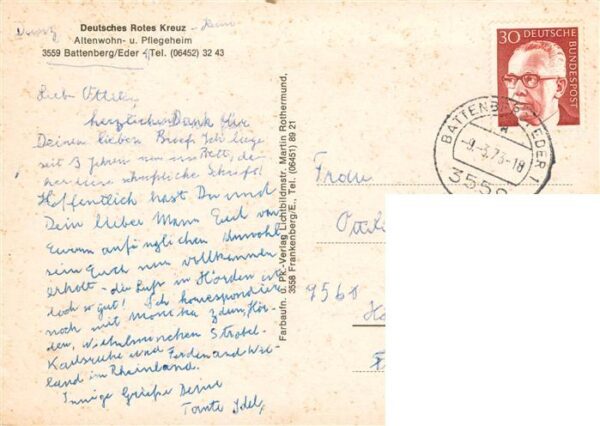 Deutsches Rotes Kreuz
Altenwohn- u. Pflegeheim
3559 Battenberg/Eder Tel. (06452) 32 43
herzlichen Dank für
Deinen lieben Brief. Ich liege
seit 3 Jahren nun im Bett, da-
her diese schreckliche Schrift!
Hoffentlich hast Du und
Dein lieber Mann Euch von
Eurem anfänglichen Unwohl
sein Euch nun vollkommen
erholt - die Luft in Hörden ist
doch so gut! Ich korrespondiere
noch mit
Karlsruhe und Ferdenand Wie-
land in Rheinland.
Innige Grüße Deine
Tante
Farbaufn. u. PK.-Verlag Lichtbildmstr. Martin Rothermund,
3558 Frankenberg/E., Tel. (06451) 89 21
30 DEUTSCHE
BUNDESPOST
BATTENBERG, EDER 1
a
-9.-3.73-18
3559
Frau
Ottili
7560